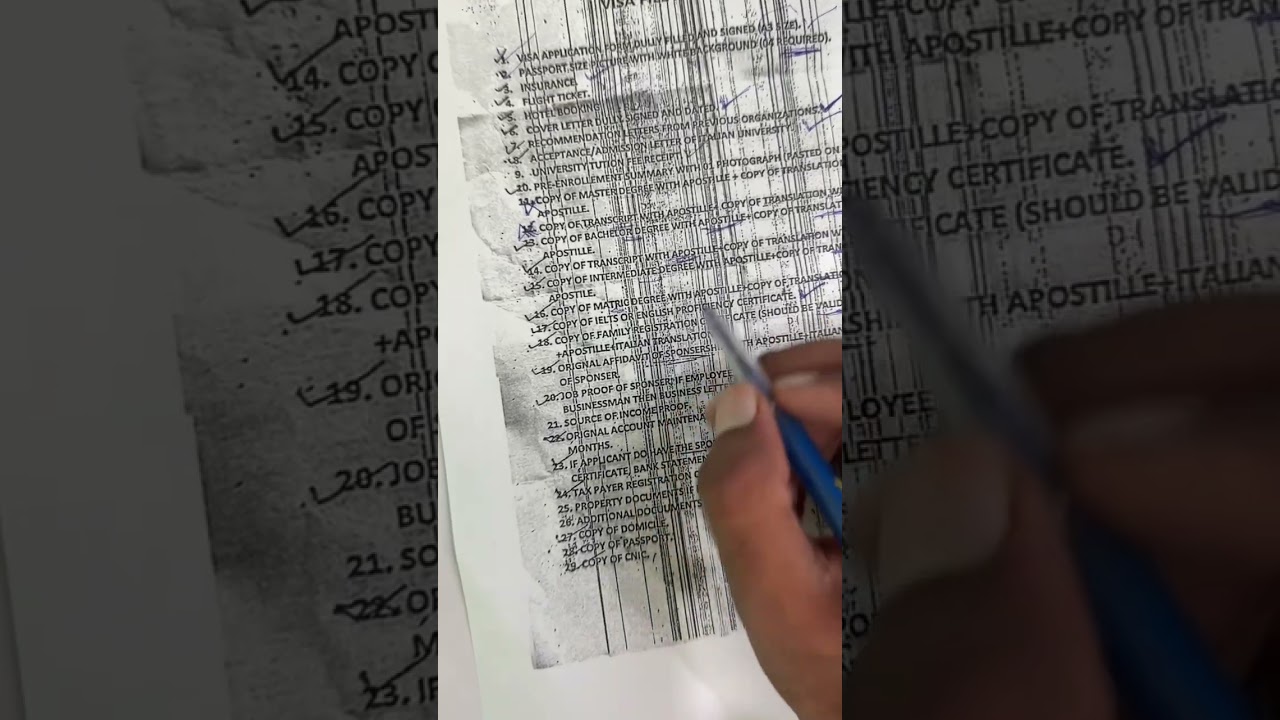 VISA FILE
1. VISA APPLICATION FORM DULLY FILLED AND SIGNED (A3 SIZE).
2. PASSPORT SIZE PICTURE WITH WHITE BACKGROUND (04 REQUIRED).
3. INSURANCE.
4. FLIGHT TICKET.
5. HOTEL BOOKING.
6. COVER LETTER DULLY SIGNED AND DATED.
7. RECOMMENDATON LETTERS FROM PREVIOUS ORGANIZATIONS.
8. ACCEPTANCE/ADMISSION LETTER OF ITALIAN UNIVERSITY.
9. UNIVERSITYTUTION FEE RECEIPT.
10. PRE-ENROLLEMENT SUMMARY WITH 01 PHOTOGRAPH (PASTED ON
11. COPY OF MASTER DEGREE WITH APOSTILLE + COPY OF TRANSLATION
APOSTILLE.
12. COPY OF TRANSCRIPT WITH APOSTILLE+ COPY OF TRANSLATION W
13. COPY OF BACHELOR DEGREE WITH APOSTILLE+COPY OF TRANSLAT
APOSTILLE.
14. COPY OF TRANSCRIPT WITH APOSTILLE+COPY OF TRANSLATION W
15. COPY OF INTERMEDIATE DEGREE WITH APOSTILLE+COPY OF TRAN
APOSTILE.
16. COPY OF MATRIC DEGREE WITH APOSTILLE+COPY OF TRANSLATIO
17. COPY OF IELTS OR ENGLISH PROFICIENCY CERTIFICATE.
18. COPY OF FAMILY REGISTRATION CATE (SHOULD BE VALID
+APOSTILLE+ITALIAN TRANSLATION
19. ORIGNAL AFFIDAVIT OF SPONSERSH TH APOSTILLE+ITALIAN
OF SPONSER.
20. JOB PROOF OF SPONSER, IF EMPLOYEE
BUSINESSMAN THEN BUSINESS LETT
21. SOURCE OF INCOME PROOF.
22. ORIGNAL ACCOUNT MAINTENA
MONTHS.
23. IF APPLICANT DO HAVE THE SPO
CERTIFICATE, BANK STATEMEN
24. TAX PAYER REGISTRATION C
25. PROPERTY DOCUMENTS IF
26. ADDITIONAL DOCUUMENTS
27. COPY OF DOMICILE.
28. COPY OF PASSPORT.
29. COPY OF CNIC.